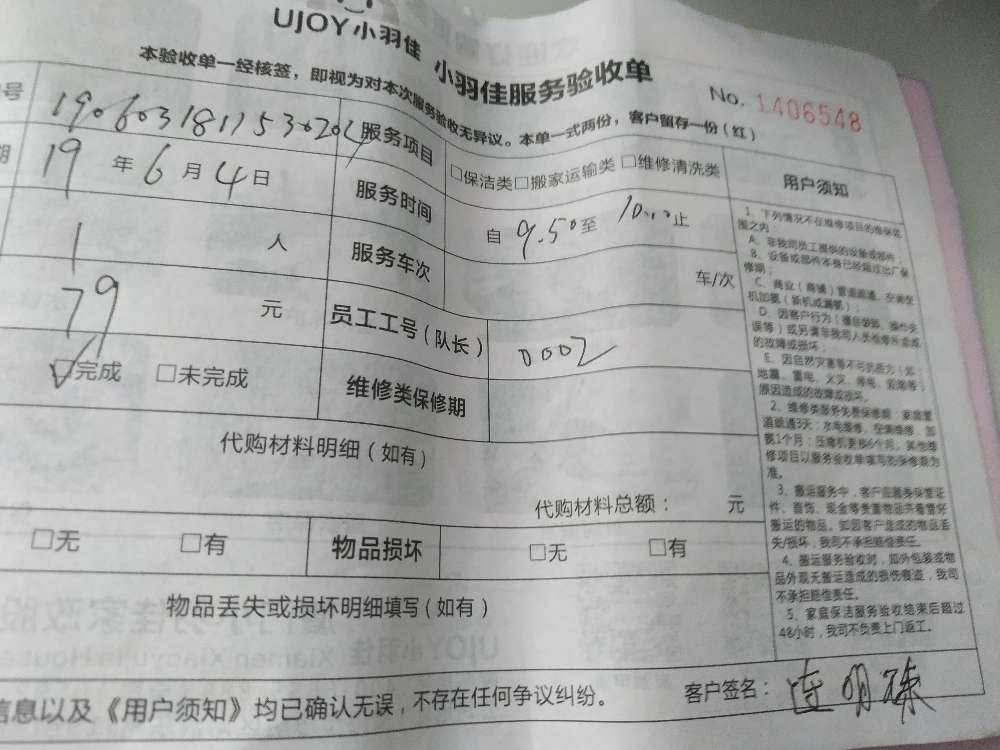 UJOY小羽佳 小羽佳服务验收单
本验收单一经核签，即视为对本次服务验收无异议。本单一式两份，客户留存一份(红)
No. 1406548
号 190603181153020 服务项目 □保洁类□搬家运输类 □维修清洗类
期 19 年 6 月 4 日 服务时间 自 9.50 至 止
1 人 服务车次 车/次
79 元 员工工号(队长) 0002
☑完成 □未完成 维修类保修期
代购材料明细(如有)
代购材料总额： 元
□无 □有 物品损坏 □无 □有
物品丢失或损坏明细填写(如有)
信息以及《用户须知》均已确认无误，不存在任何争议纠纷。
客户签名：连明珠
用户须知
1、下列情况不在维修项目的维保范
围之内：
A、非我司员工提供的设备或部件；
B、设备或部件本身已经超过出厂保
修期；
C、商业(商铺)管道疏通、空调全
机加氟(新机或漏氟)；
D、因客户行为(擅自装卸、操作失
误等)或另请非我司人员维修所造成
的故障或损坏；
E、因自然灾害等不可抗能力(如
地震、雷电、火灾、停电、
原因造成的故障或损坏。
2、维修类服务免费保修期：家庭管
道疏通3天；水电维修、空调维修、加
氟1个月；压缩机更换6个月，其他维
修项目以服务验收单填写的保修期为
准。
3、搬运服务中，客户应随身保管证
件、首饰、现金等贵重物品并看管好
搬运的物品。如因客户造成的物品丢
失/损坏，我司不承担赔偿责任。
4、搬运服务验收时，如外包装或物
品外观无搬运造成的损伤痕迹，我司
不承担赔偿责任。
5、家庭保洁服务验收结束后超过
48小时，我司不负责上门返工。